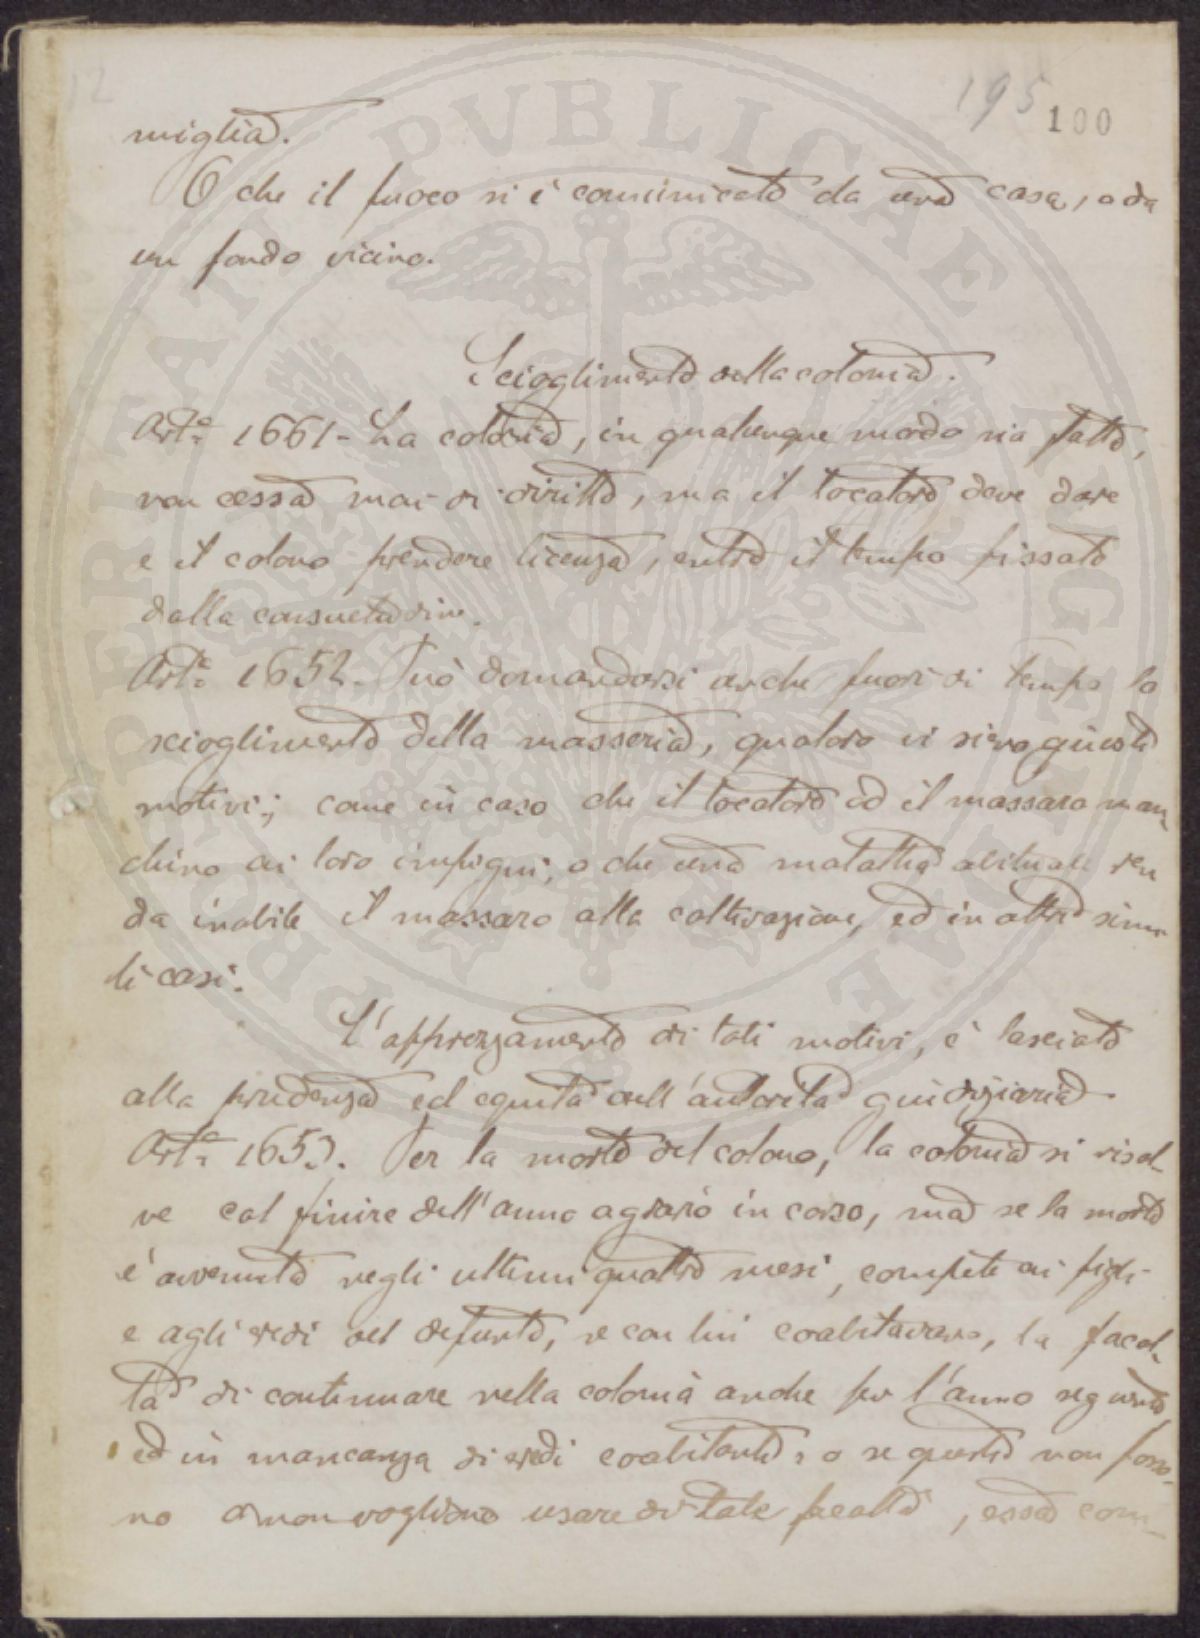 12
195
100
miglia.
O che il fuoco si è comunicato da una casa, o da
un fondo vicino.
Scioglimento della colonia.
Art.° 1661 - La colonia, in qualunque modo sia fatta,
non cessa mai di diritto, ma il locatore deve dare
e il colono prendere licenza, entro il tempo fissato
dalla consuetudine.
Art.° 1652. Può domandarsi anche fuori di tempo lo
scioglimento della masseria, qualora vi sieno giusti
motivi; come in caso che il locatore od il massaro man-
chino ai loro impegni, o che una malattia abituale ren
da inabile il massaro alla coltivazione, ed in altri simi
li casi.
L'apprezzamento di tali motivi, è lasciato
alla prudenza ed equità dell'autorità giudiziaria.
Art.° 1653. Per la morte del colono, la colonia si risol-
ve col finire dell'anno agrario in corso, ma se la morte
è avvenuta negli ultimi quattro mesi, compete ai figli
e agli eredi del defunto, se con lui coabitavano, la facol-
tà di continuare nella colonia anche per l'anno seguente
ed in mancanza di eredi coabitanti, o se questi non posso-
no o non vogliono usare di tale facoltà, essa com-
PROSPERITATI PVBLICAE AVGENDAE